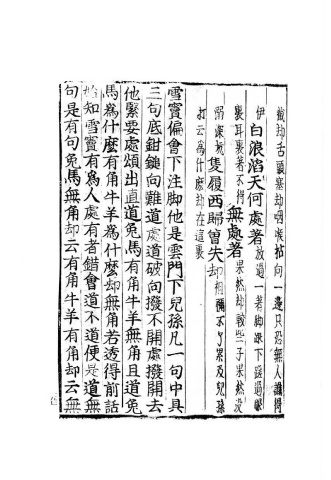 截却舌頭塞却咽喉拈向一邊只恐無人識得
伊 白浪滔天何處著 放過一著脚跟下蹉過眼
裏耳裏著不得 無處著 果然却較些子果然没
溺深坑 隻履西歸曾失却 祖禰不了累及兒孫
打云為什麽却在這裏
雪竇偏會下注脚他是雲門下兒孫凡一句中具
三句底鉗鎚向難道處道破向撥不開處撥開去
他緊要處頌出直道兔馬有角牛羊無角且道兔
馬爲什麽有角牛羊爲什麽却無角若透得前話
始知雪竇有爲人處有者錯會道不道便是道無
句是有句兔馬無角却云有角牛羊有角却云無